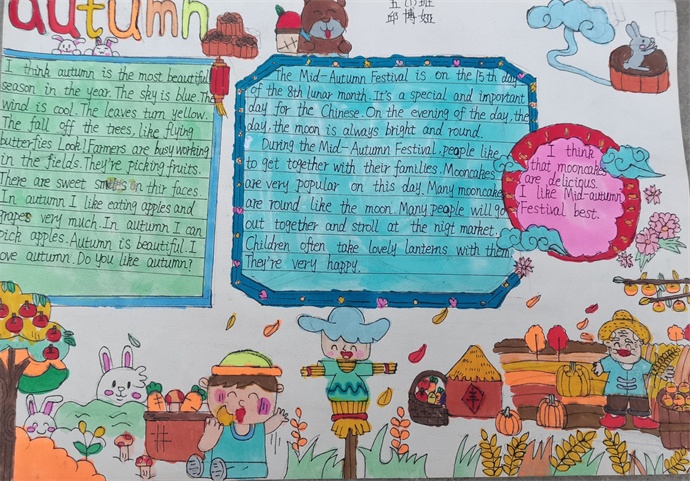 autumn
五(1)班
邱博娅
I think autumn is the most beautiful
season in the year. The sky is blue. The
wind is cool. The leaves turn yellow.
The fall off the trees, like flying
butterfies Look! Farmers are busy working
in the fields. They're picking fruits.
There are sweet smiles on thir faces
In autumn I like eating apples and
grapes very much. In autumn I can
pick apples. Autumn is beautiful. I
love autumn. Do you like autumn?
The Mid-Autumn Festival is on the 15th day
of the 8th lunar month. It's a special and important
day for the Chinese. On the evening of the day, the
day, the moon is always bright and round.
During the Mid-Autumn Festival, people like
to get together with their families. Mooncakes
are very popular on this day. Many mooncake
are round like the moon. Many people will go
out together and stroll at the nigt market.
Children often take lovely lanterns with them
They're very happy.
I think
that mooncakes
are delicious.
I like Mid-autumn
Festival best.